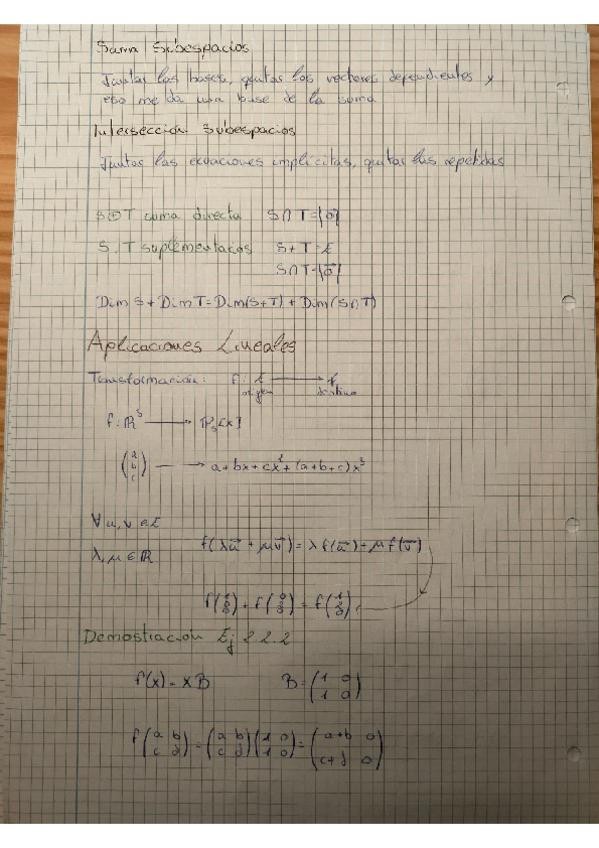 Suma Subespacios
Juntar las bases, quitar los vectores dependientes y
eso me da una base de la suma
Intersección Subespacios
Juntar las ecuaciones implícitas, quitar las repetidas
S⊕T suma directa S∩T={0⃗}
S, T suplementarios S+T=E
S∩T={0⃗}
Dim S + Dim T = Dim(S+T) + Dim(S∩T)
Aplicaciones Lineales
Transformación: f: E ⟶ F
origen destino
f: ℝ³ ⟶ ℙ₃[x]
(a b c) ⟶ a+bx+cx²+(a+b+c)x³
∀u,v ∈ E
λ,μ ∈ ℝ f(λu⃗ + μv⃗) = λf(u⃗) + μf(v⃗)
Demostración Ej 2.2.2
f(x) = XB B = (1 0 / 1 0)
f(a b / c d) = (a b / c d)(1 0 / 1 0) = (a+b 0 / c+d 0)